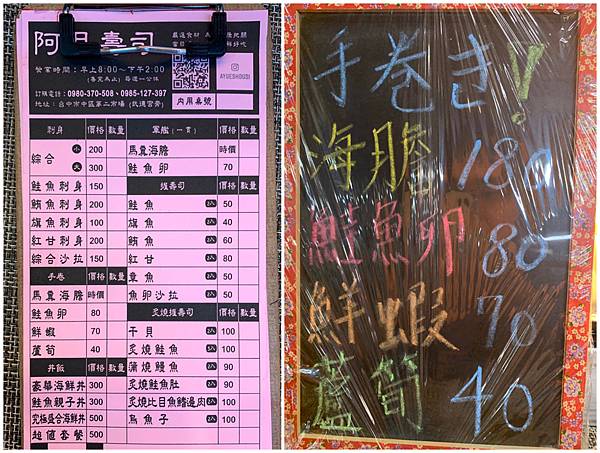 阿月壽司
AYUESHOUSI
營業時間：早上8:00～下午2:00
(售完為止) 每週一公休
訂購電話：0980-370-508、0985-127-397
地址：台中市中區第二市場 (武德宮旁)
內用桌號
刺身 價格 數量
綜合 小 200
大 300
鮭魚刺身 150
鮪魚刺身 200
旗魚刺身 150
紅甘刺身 200
綜合沙拉 150
手卷 價格 數量
馬糞海膽 時價
鮭魚卵 80
鮮蝦 70
蘆筍 40
丼飯 價格 數量
豪華海鮮丼 300
鮭魚親子丼 300
究極盛合海鮮丼 500
超值套餐 500
軍艦 (一貫) 價格 數量
馬糞海膽 時價
鮭魚卵 70
握壽司 價格 數量
鮭魚 2入 50
旗魚 2入 40
鮪魚 2入 60
紅甘 2入 80
章魚 2入 50
魚卵沙拉 2入 50
炙燒握壽司 價格 數量
干貝 2入 100
炙燒鮭魚 2入 100
蒲燒鰻魚 2入 90
炙燒鮭魚肚 2入 90
炙燒比目魚鰭邊肉 2入 100
烏魚子 2入 100
手卷き!
海膽 180
鮭魚卵 80
鮮蝦 70
蘆筍 40